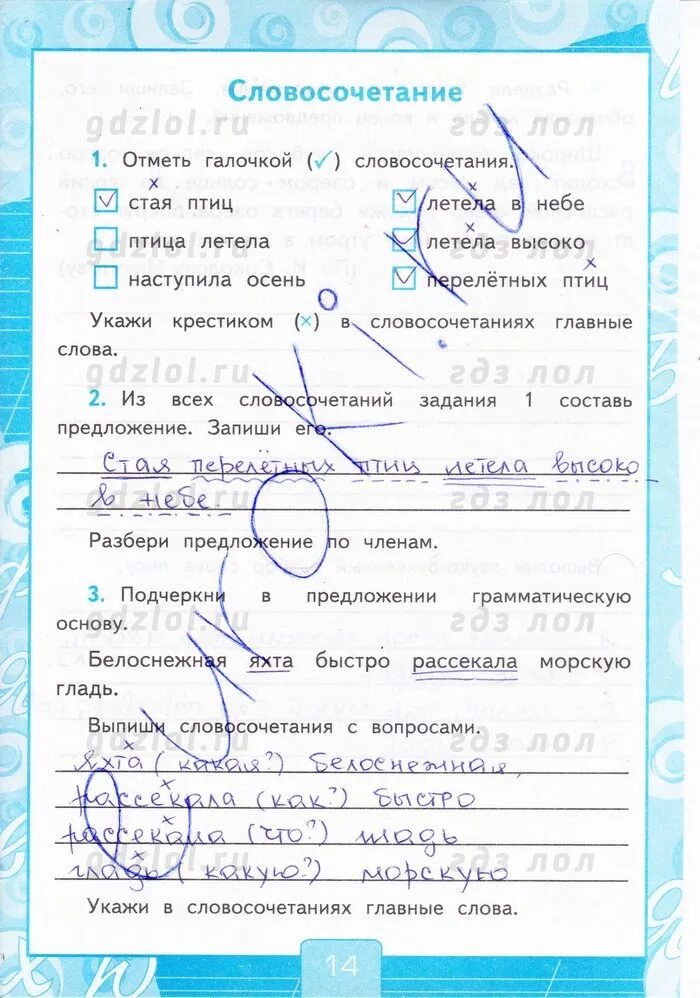 Словосочетание
gdzlol.ru гдз лол
1. Отметь галочкой (✓) словосочетания.
✓ стая птиц ✓ летела в небе
птица летела ✓ летела высоко
наступила осень ✓ перелётных птиц
Укажи крестиком (×) в словосочетаниях главные
слова.
gdzlol.ru гдз лол
2. Из всех словосочетаний задания 1 составь
предложение. Запиши его.
Стая перелётных птиц летела высоко
в небе.
gdzlol.ru гдз лол
Разбери предложение по членам.
3. Подчеркни в предложении грамматическую
основу.
gdzlol.ru гдз лол
Белоснежная яхта быстро рассекала морскую
гладь.
Выпиши словосочетания с вопросами.
gdzlol.ru гдз лол
Яхта (какая?) белоснежная,
рассекала (как?) быстро
рассекала (что?) гладь
gdzlol.ru гдз лол
гладь (какую?) морскую
Укажи в словосочетаниях главные слова.
14